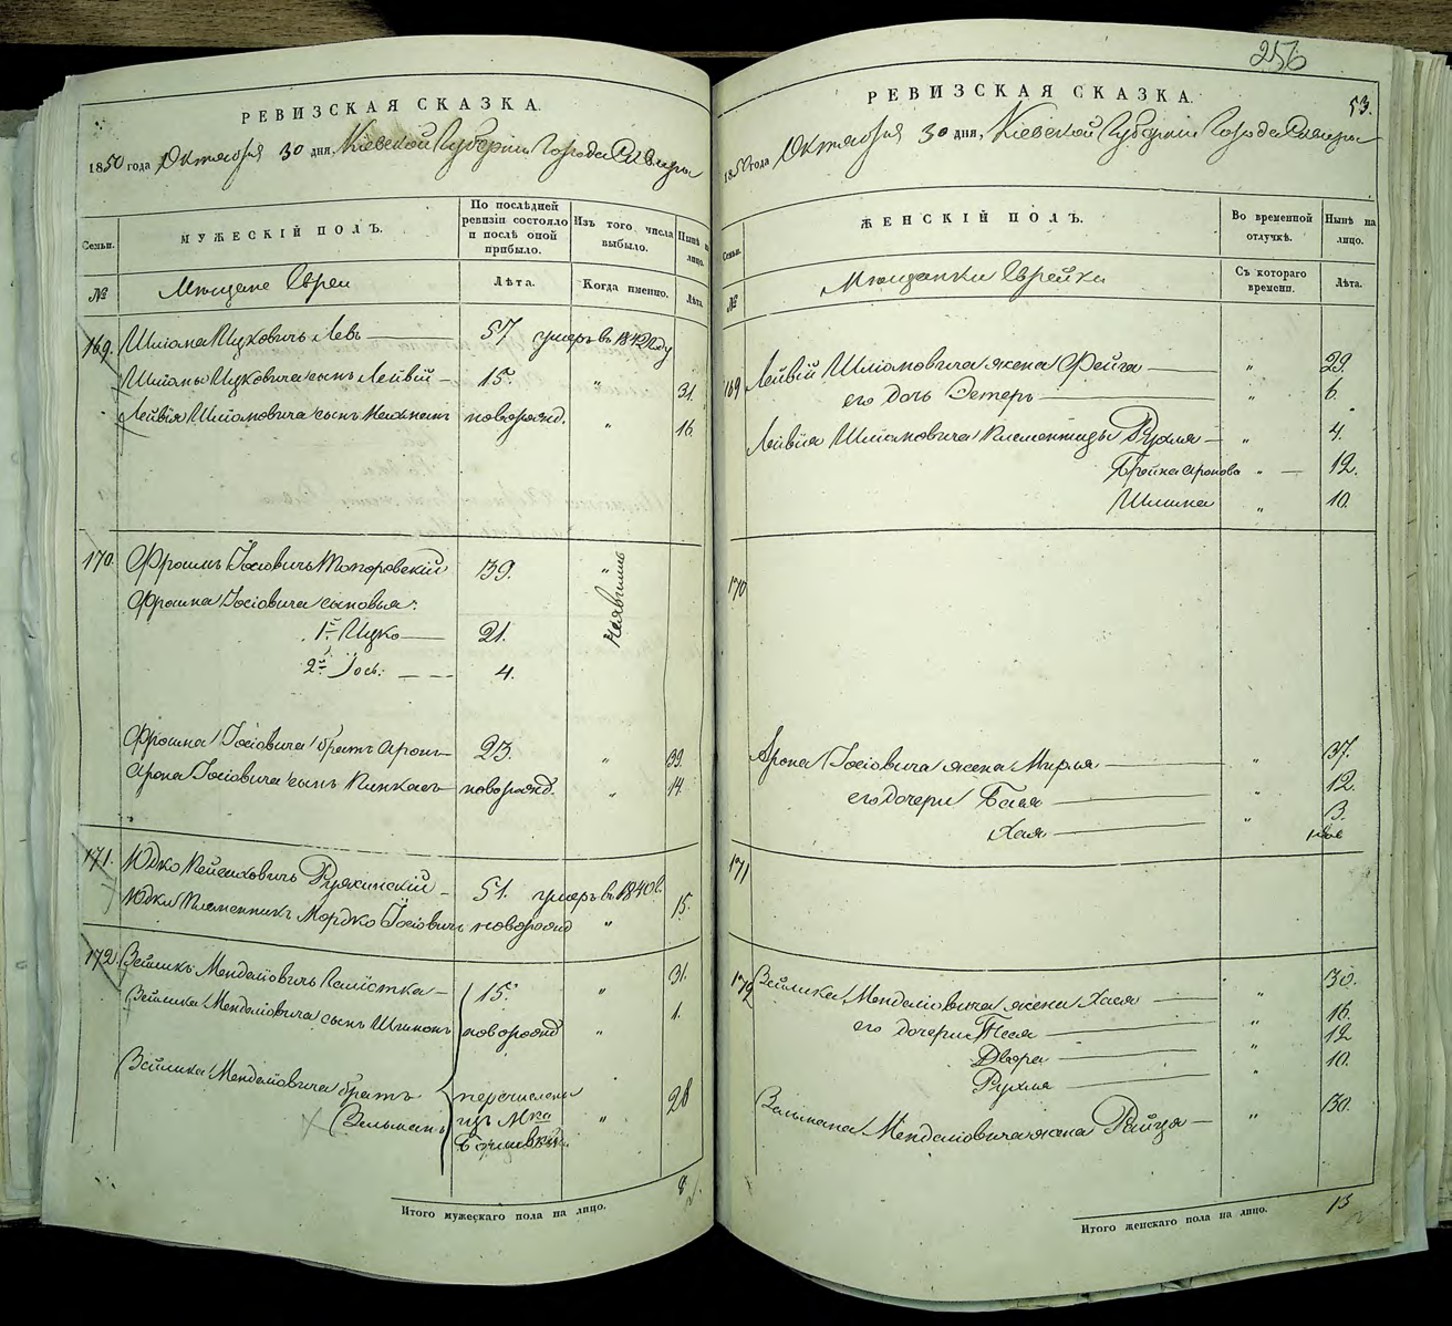 РЕВИЗСКАЯ СКАЗКА.
1850 года Октября 30 дня, Кіевской Губерніи Города Сквиры
Семьи.
МУЖЕСКІЙ ПОЛЪ.
По послѣдней ревизіи состояло и послѣ оной прибыло.
Изъ того числа выбыло.
Нынѣ на лицо.
№
Мѣщане Евреи
Лѣта.
Когда именно.
Лѣта.
169. Шліома Ицковичъ Левъ 57 умеръ въ 1842 году
Шліомы Ицковича сынъ Лейвій 15. " 31.
Лейвія Шліомовича сынъ новорожд. " 16.
170. Фроимъ Іосіовичъ Топоровскій 39. "
Фроима Іосіовича сыновья:
1й Ицко 21.
2й Іось 4.
Фроима Іосіовича братъ Аронъ 23. " 39.
Арона Іосіовича сынъ Пинкасъ новорожд. " 14.
171. Юдко Ружинскій 51. умеръ въ 1840 г.
Юдки племенникъ Мордко Іосіовичъ новорожд " 15.
172. Зейликъ Менделіовичъ 15. " 31.
Зейлика Менделіовича сынъ Шимонъ новорожд " 1.
Зейлика Менделіовича братъ перечисленъ
Зельманъ изъ Мка " 28
Итого мужескаго пола на лицо. 8
256
РЕВИЗСКАЯ СКАЗКА.
53.
1850 года Октября 30 дня, Кіевской Губерніи Города Сквиры
Семьи.
ЖЕНСКІЙ ПОЛЪ.
Во временной отлучкѣ.
Нынѣ на лицо.
№
Мѣщанки Еврейки
Съ котораго времени.
Лѣта.
169 Лейвій Шліомовича жена Фейга " 29.
его дочь Эстеръ " 6.
Лейвія Шліомовича племенницы Рухля " 4.
Бройна Аронова " 12.
" 10.
170
Арона Іосіовича жена Мирля " 37.
его дочери Бася 12.
Хая " 3.
171
172 Зейлика Менделіовича жена Хася " 30.
его дочери " 16.
Двора " 12
Рухля " 10.
Зельмана Менделіовича жена Райця " 30.
Итого женскаго пола на лицо. 13